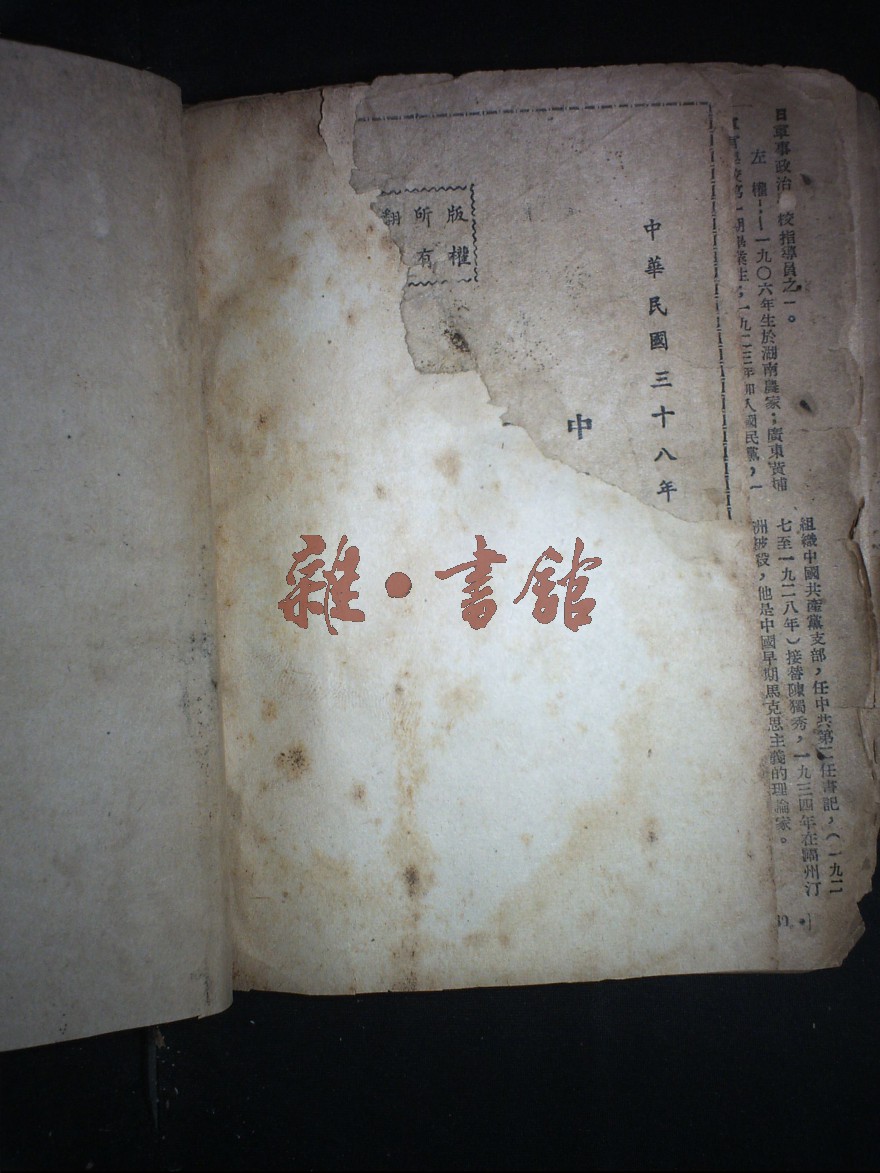 日軍事政治 校指導員之一。
左權:——一九〇六年生於湖南農家;廣東黃埔
一期畢業生,一九二三年加入國民黨,一
組織中國共產黨支部,任中共第二任書記,(一九二
七至一九二八年)接替陳獨秀,一九三四年在福州汀
洲被殺,他是中國早期馬克思主義的理論家。
中華民國三十八年
中
版權
所有
翻
雜·書館